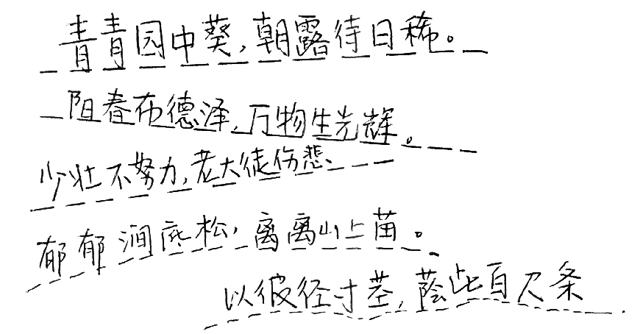 青青园中葵,朝露待日稀。
阳春布德泽,万物生光辉。
少壮不努力,老大徒伤悲、
郁郁涧底松,离离山上苗。
以彼径寸茎,荫此百尺条